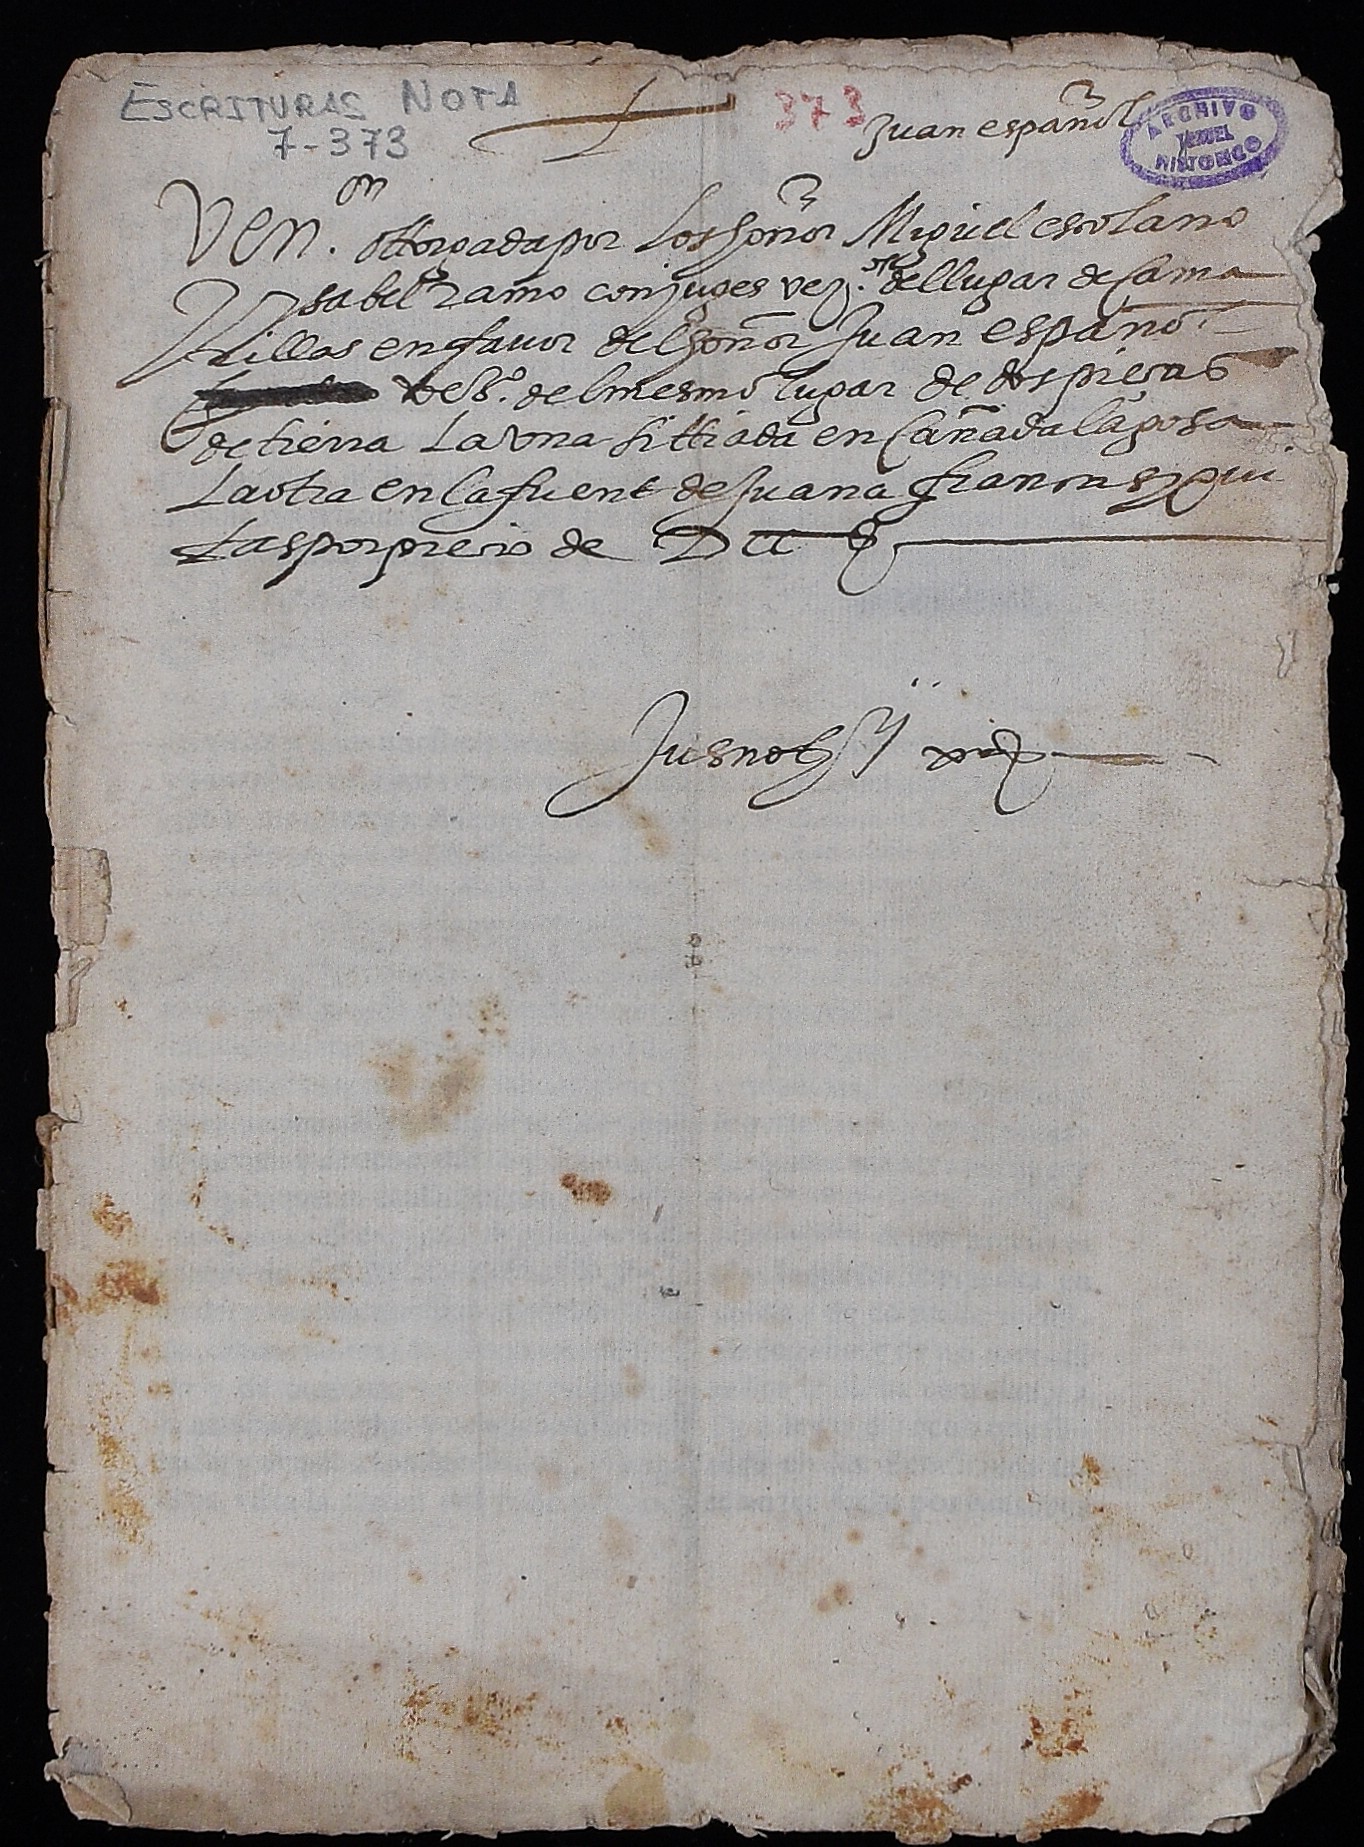 ESCRITURAS NOTA
7-373
373
Juan español
ARCHIVO
TERUEL
HISTORICO
Ven.on ottorgada por Los señor Miguel escolano
Ysabel Ramo conjuges vez.os del lugar de Cama
rillas en fauor del señor Juan español
vez.o del mesmo lugar de dos pieças
de tierra La vna sittiada en Cañada lagosa
La otra en la fuent de Juana francas y qui
tas por precio de